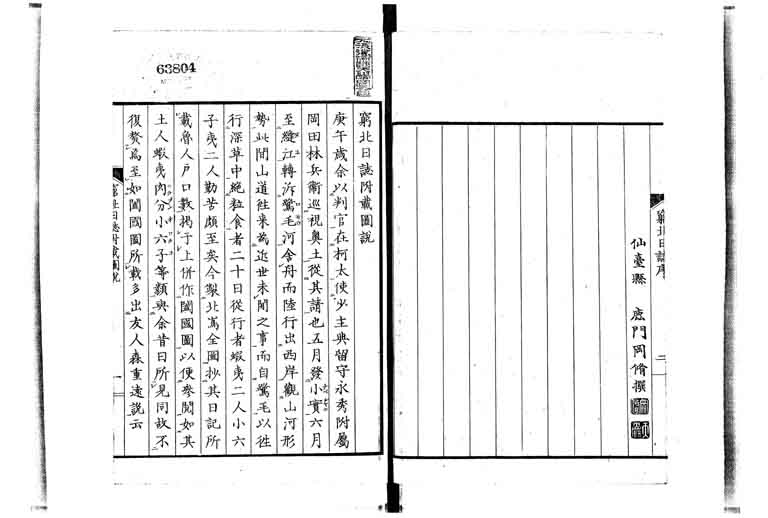 窮北日誌序
二
仙臺縣 鹿門岡脩撰
63804
窮北日誌附載圖説
庚午歲余以判官在柯太使少主典留守永秀附屬
岡田林兵衞巡視奥土從其請也五月發小實六月
至縫江轉泝鵞毛河舍舟而陸行出西岸觀山河形
勢此間山道往來爲近世未聞之事而自鵞毛以往
行深草中絶粒食者二十日從行者蝦夷二人小六
子夷二人勤苦頗至矣今製北嶌全圖抄其日記所
載魯人戸口數揭于上併作闔國圖以便參閲如其
土人蝦夷内分小六子等類與余昔日所見同故不
復贅焉至如闔國圖所載多出友人森重遠説云
窮北日誌附載圖説
一